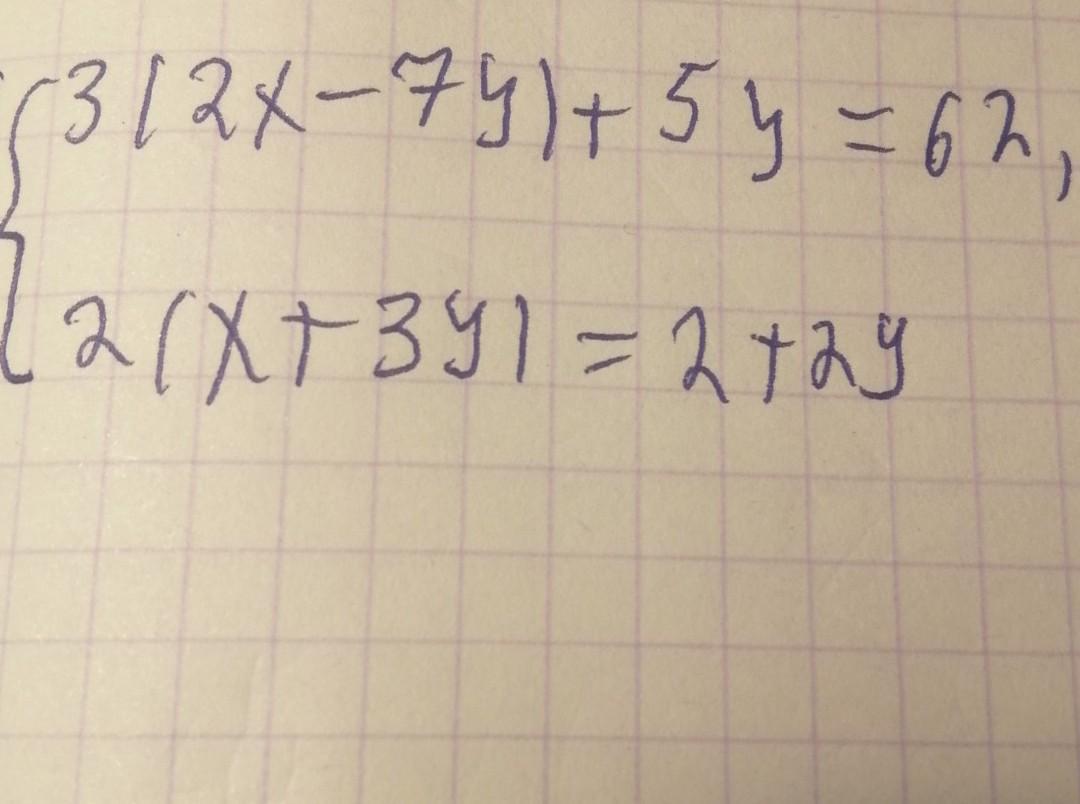 3(2x-7y)+5y=62,
2(x+3y)=2+2y